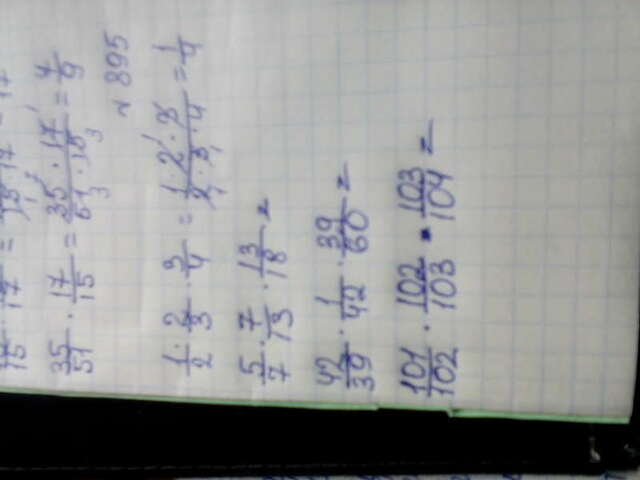 35/51 · 17/15 = 35 · 17/51 · 15 = 7/9
№ 895
1/2 · 2/3 · 3/4 = 1 · 2 · 3/2 · 3 · 4 = 1/4
5/7 · 7/13 · 13/18 =
42/39 · 1/42 · 39/60 =
101/102 · 102/103 · 103/104 =